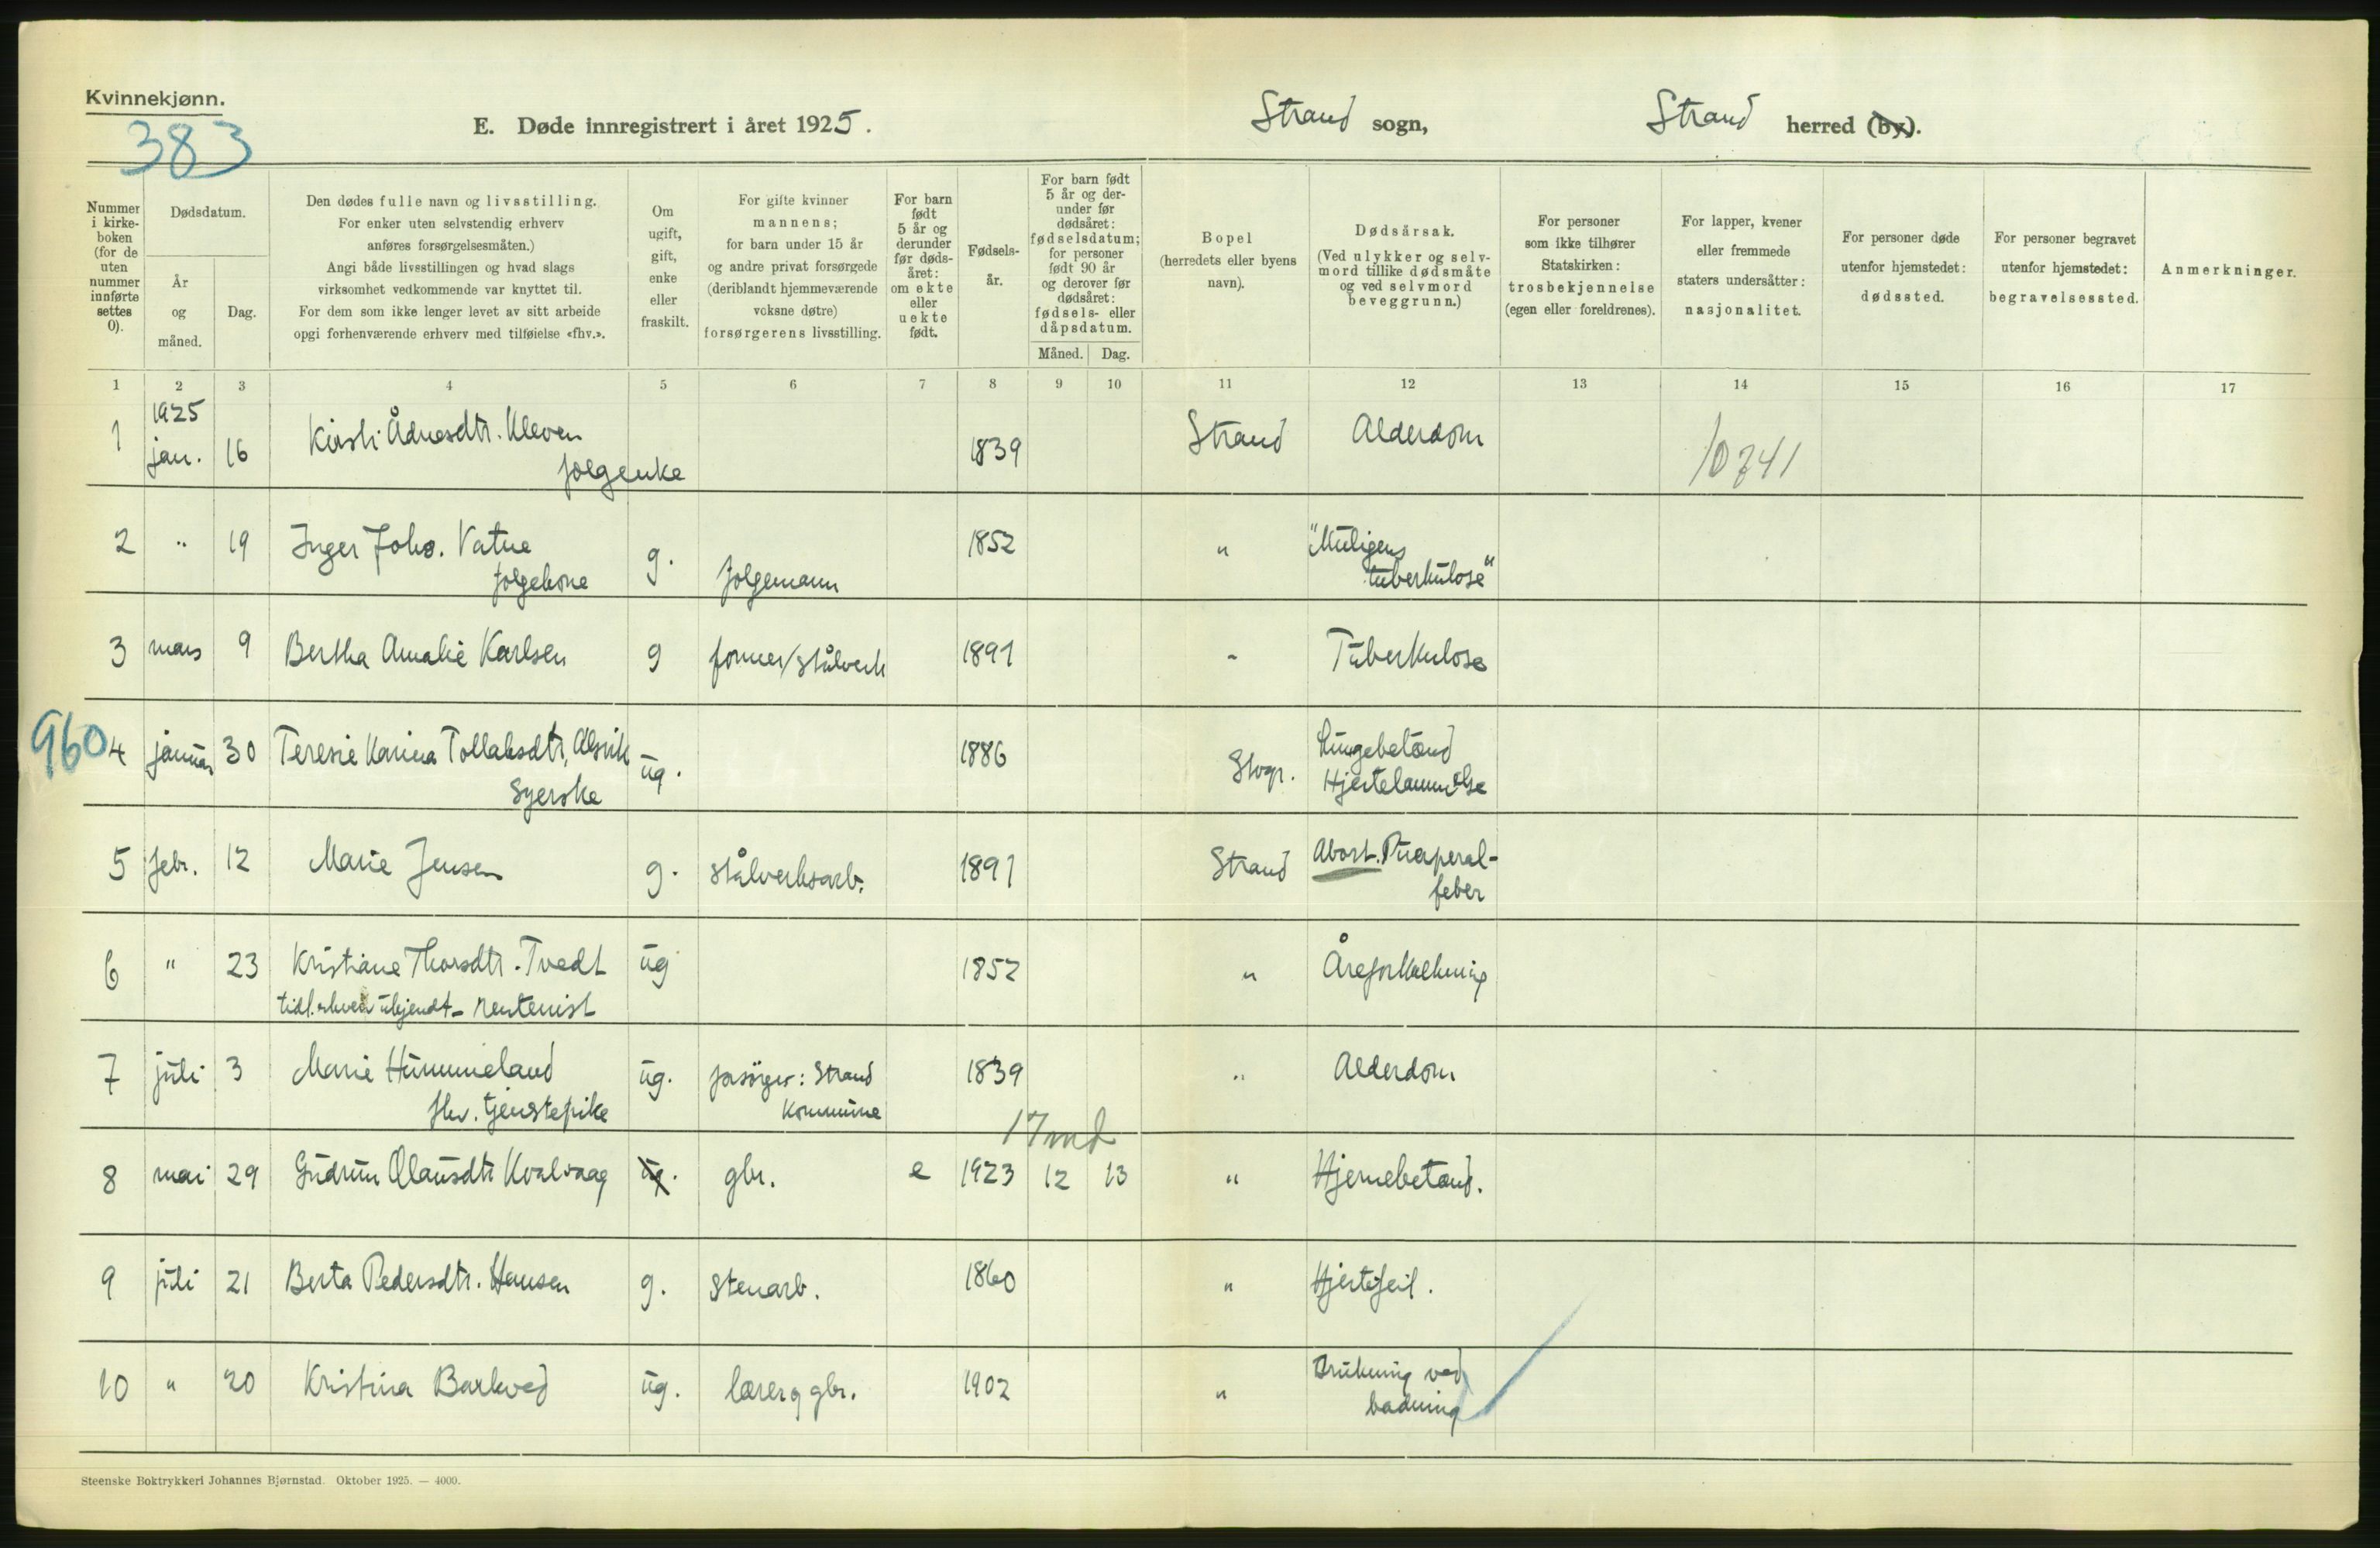 Kvinnekjønn.
383
E. Døde innregistrert i året 1925.
Strand sogn,
Strand herred (by).
Nummer i kirke- boken (for de uten nummer innførte settes 0).
Dødsdatum.
År og måned.
Dag.
Den dødes fulle navn og livsstilling.
For enker uten selvstendig erhverv
anføres forsørgelsesmåten.)
Angi både livsstillingen og hvad slags
virksomhet vedkommende var knyttet til.
For dem som ikke lenger levet av sitt arbeide
opgi forhenværende erhverv med tilføielse «fhv.».
Om ugift, gift, enke eller fraskilt.
For gifte kvinner
mannens;
for barn under 15 år
og andre privat forsørgede
(deriblandt hjemmeværende
voksne døtre)
forsørgerens livsstilling.
For barn født 5 år og derunder før døds- året: om ekte eller uekte født.
Fødsels- år.
For barn født 5 år og der- under før dødsåret: fødselsdatum; for personer født 90 år og derover før dødsåret: fødsels- eller dåpsdatum.
Måned. Dag.
Bopel
(herredets eller byens
navn).
Dødsårsak.
(Ved ulykker og selv-
mord tillike dødsmåte
og ved selvmord
beveggrunn.)
For personer
som ikke tilhører
Statskirken:
trosbekjennelse
(egen eller foreldrenes).
For lapper, kvener
eller fremmede
staters undersåtter:
nasjonalitet.
For personer døde
utenfor hjemstedet:
dødssted.
For personer begravet
utenfor hjemstedet:
begravelsessted.
Anmerkninger.
1 2 3 4 5 6 7 8 9 10 11 12 13 14 15 16 17
1925
1 jan. 16 Kirsti Ådnesdtr. Kleven 1839 Strand Alderdom
folgenke
10741
2 " 19 Inger Johs. Vatne g. folgemann 1852 " "Muligens
folgekone tuberkulose"
3 mars 9 Bertha Amalie Karlsen g former/stålverk 1891 " Tuberkulose
960
4 januar 30 Teresie Karina Tollaksdtr. ug. 1886 Lungebetænd
Syerske Hjertelammelse
5 febr. 12 Marie Jensen g. stålverksarb. 1891 Strand Abort. Puerperal-
feber
6 " 23 Kristiane Thorsdtr. Tvedt ug 1852 " Åreforkalkning
tidl. erhverv ubjendt - rentenist
7 juli 3 Marie Hummeland ug. forsörger: Strand 1839 " Alderdom
fhv. tjenstepike kommune
17 md
8 mai 29 Gudrun Olausdtr Kvalvaag ug. gbr. e 1923 12 13 " Hjernebetænd.
9 juli 21 Berta Pedersdtr. Hansen g. Stenarb. 1860 " Hjertefeil.
10 " 20 Kristina Barkved ug. lærer og gbr. 1902 " Drukning ved
badning
Steenske Boktrykkeri Johannes Bjørnstad. Oktober 1925. — 4000.